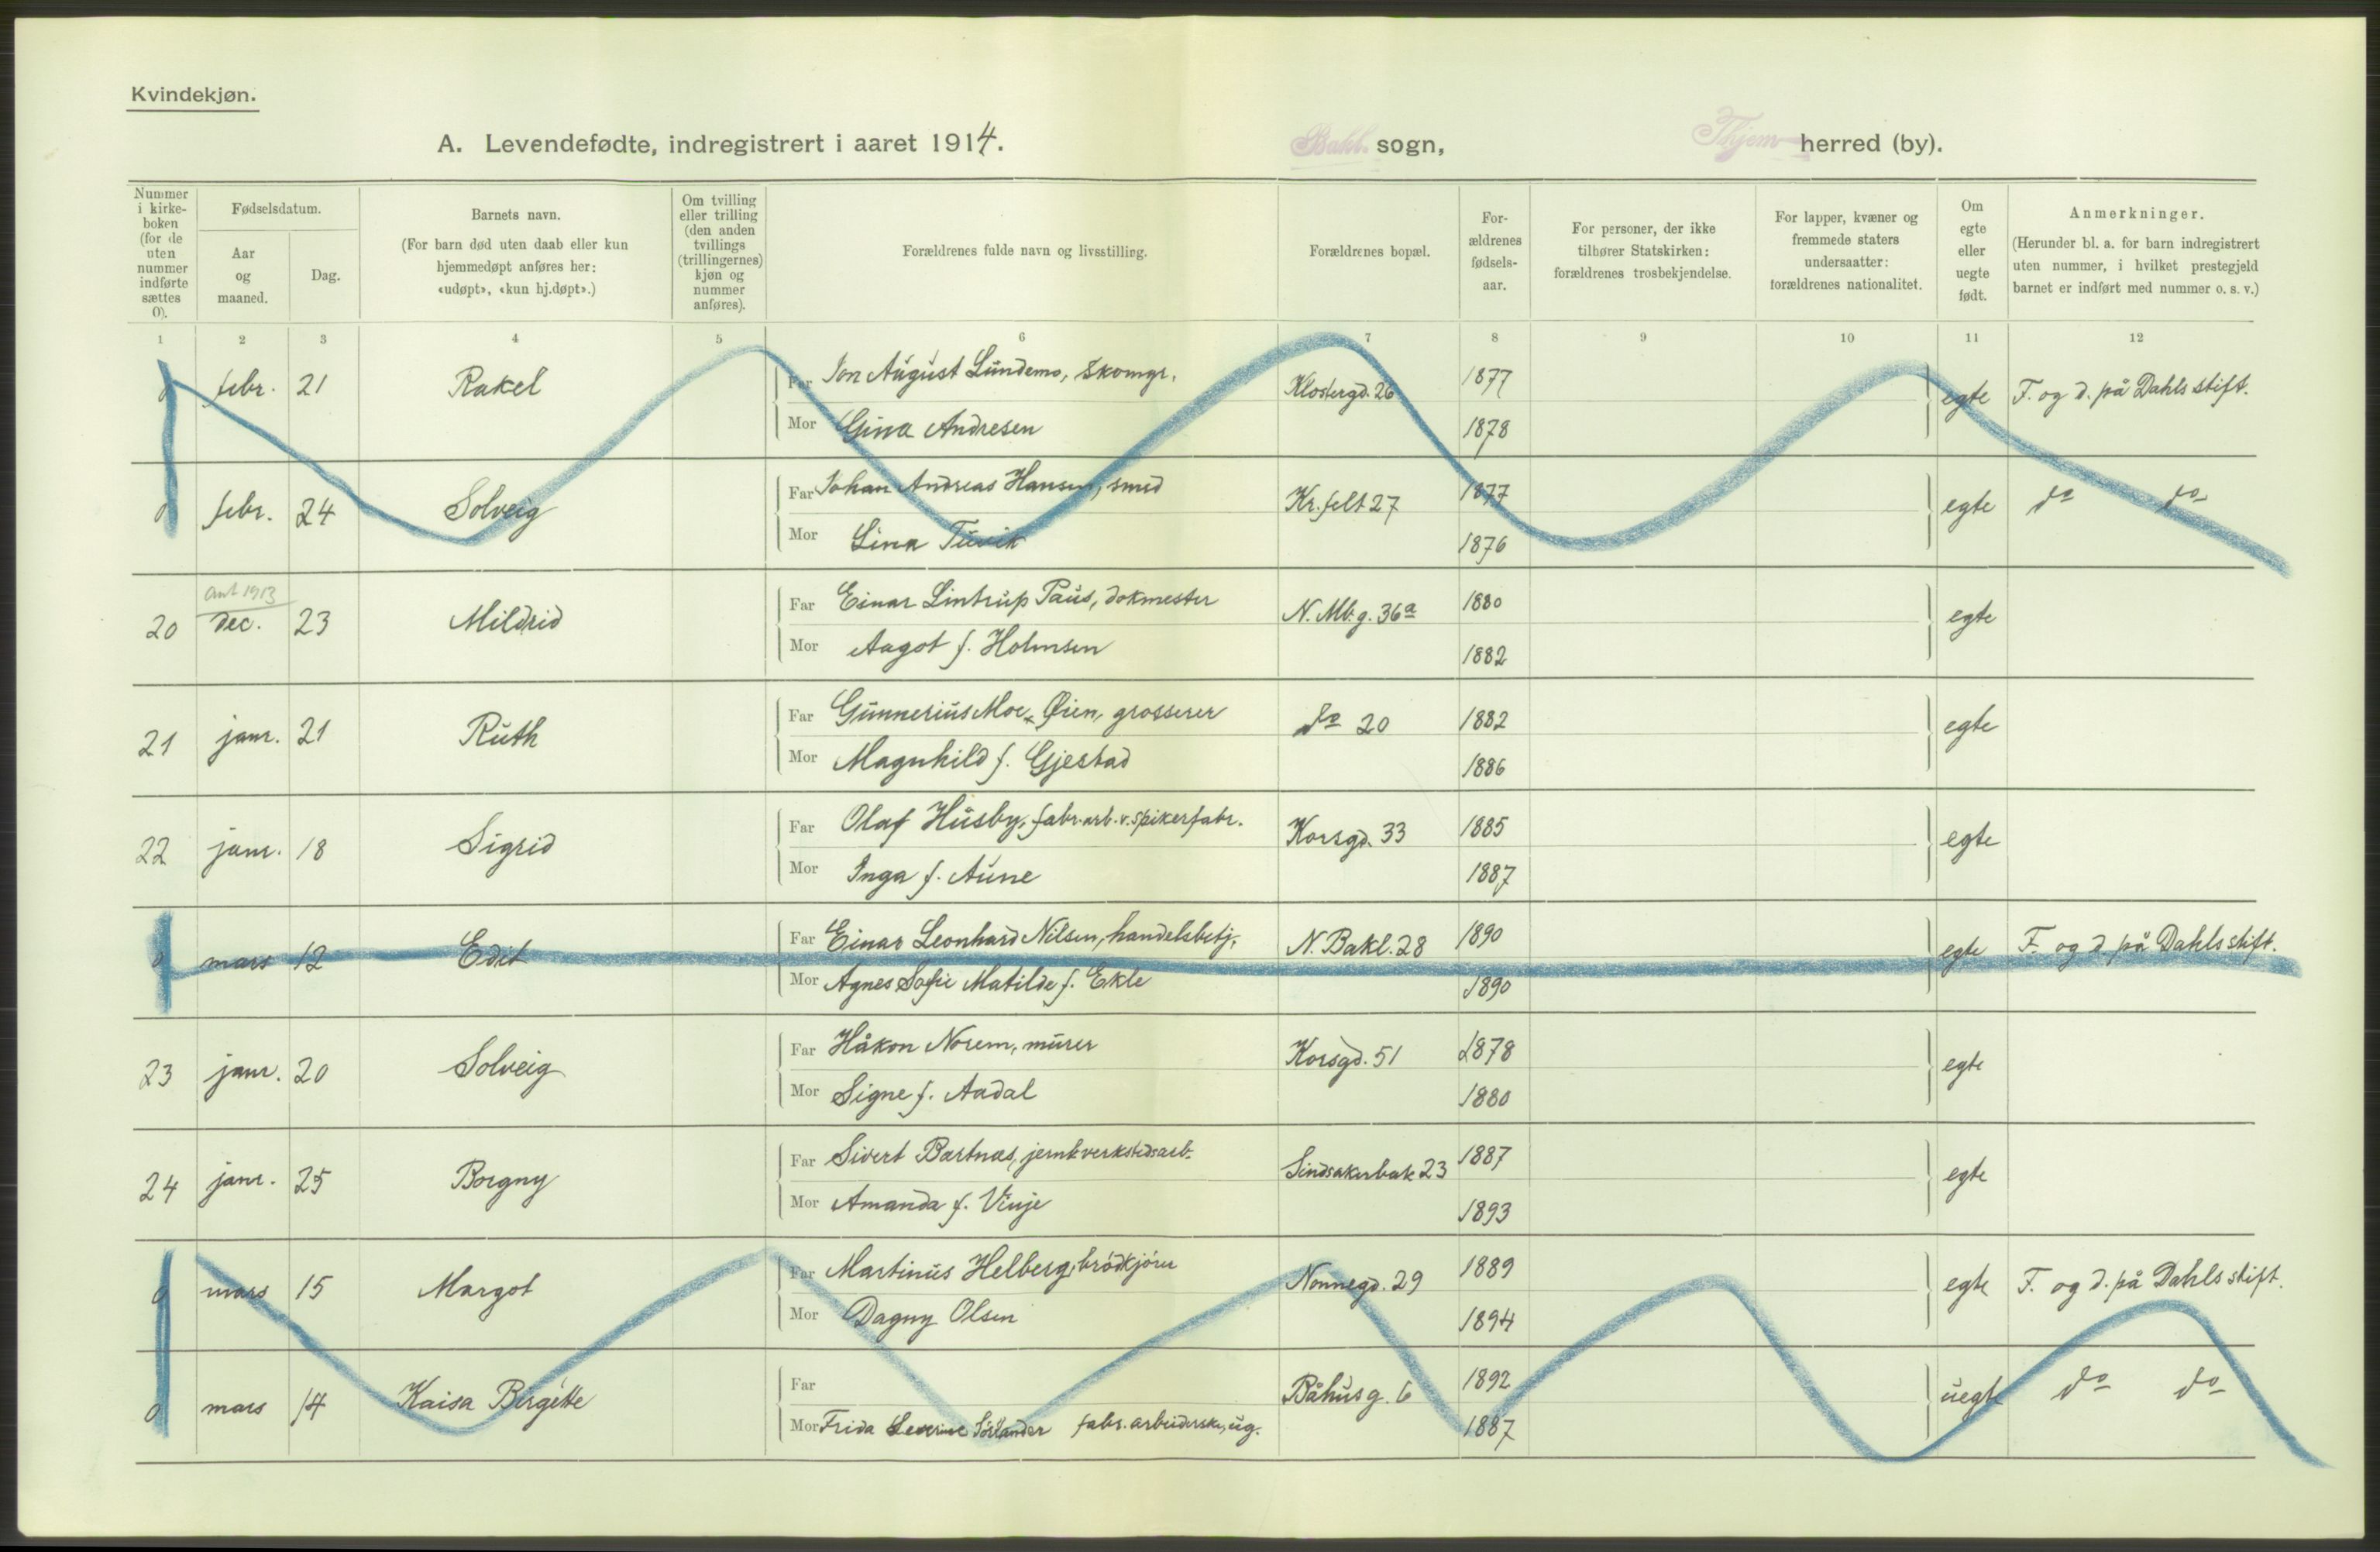 Kvindekjøn.
A. Levendefødte, indregistrert i aaret 1914. Bakl. sogn, Thjem herred (by).
Nummer i kirkeboken (for de uten nummer indførte sættes 0).
Fødselsdatum.
Aar og maaned.
Dag.
Barnets navn.
(For barn død uten daab eller kun hjemmedøpt anføres her: «udøpt», «kun hj.døpt».)
Om tvilling eller trilling (den anden tvillings (trillingernes) kjøn og nummer anføres).
Forældrenes fulde navn og livsstilling.
Forældrenes bopæl.
For-ældrenes fødsels-aar.
For personer, der ikke tilhører Statskirken: forældrenes trosbekjendelse.
For lapper, kvæner og fremmede staters undersaatter: forældrenes nationalitet.
Om egte eller uegte født.
Anmerkninger.
(Herunder bl. a. for barn indregistrert uten nummer, i hvilket prestegjeld barnet er indført med nummer o. s. v.)
1 2 3 4 5 6 7 8 9 10 11 12
0 febr. 21 Rakel Far Jon August Lundemo, skomgr. Klostergd. 26 1877 egte F. og d. på Dahls stift.
Mor Gina Andresen 1878
0 febr. 24 Solveig Far Johan Andreas Hansen, smed Kr. felt 27 1877 egte do do
Mor Lina Tuvik 1876
ant 1913
20 dec. 23 Mildrid Far Einar Lintrup Paus, dokmester N. Mb.g. 36a 1880 egte
Mor Aagot f. Holmsen 1882
21 janr. 21 Ruth Far Gunnerius Moe Øien, grosserer do 20 1882 egte
Mor Magnhild f. Gjestad 1886
22 janr. 18 Sigrid Far Olaf Husby, fabr.arb. v. spikerfabr. Korsgd. 33 1885 egte
Mor Inga f. Aune 1887
0 mars 12 Edit Far Einar Leonhard Nilsen, handelsbetj. N. Bakl. 28 1890 egte F. og d på Dahls stift.
Mor Agnes Sofie Matilde f. Ekle 1890
23 janr. 20 Solveig Far Håkon Norem, murer Korsgd. 51 1878 egte
Mor Signe f. Aadal 1880
24 janr. 25 Borgny Far Sivert Bartnæs, jernb.verkstedsarb. Lindsakerbak 23 1887 egte
Mor Amanda f. Vinje 1893
0 mars 15 Margot Far Martinus Helberg, brödkjörer Nonnegd. 29 1889 egte F. og d. på Dahls stift.
Mor Dagny Olsen 1894
0 mars 14 Kaisa Bergette Far Båhusg. 6 1892 uegte do do
Mor Frida Severine fabr. arbeiderske, ug. 1887